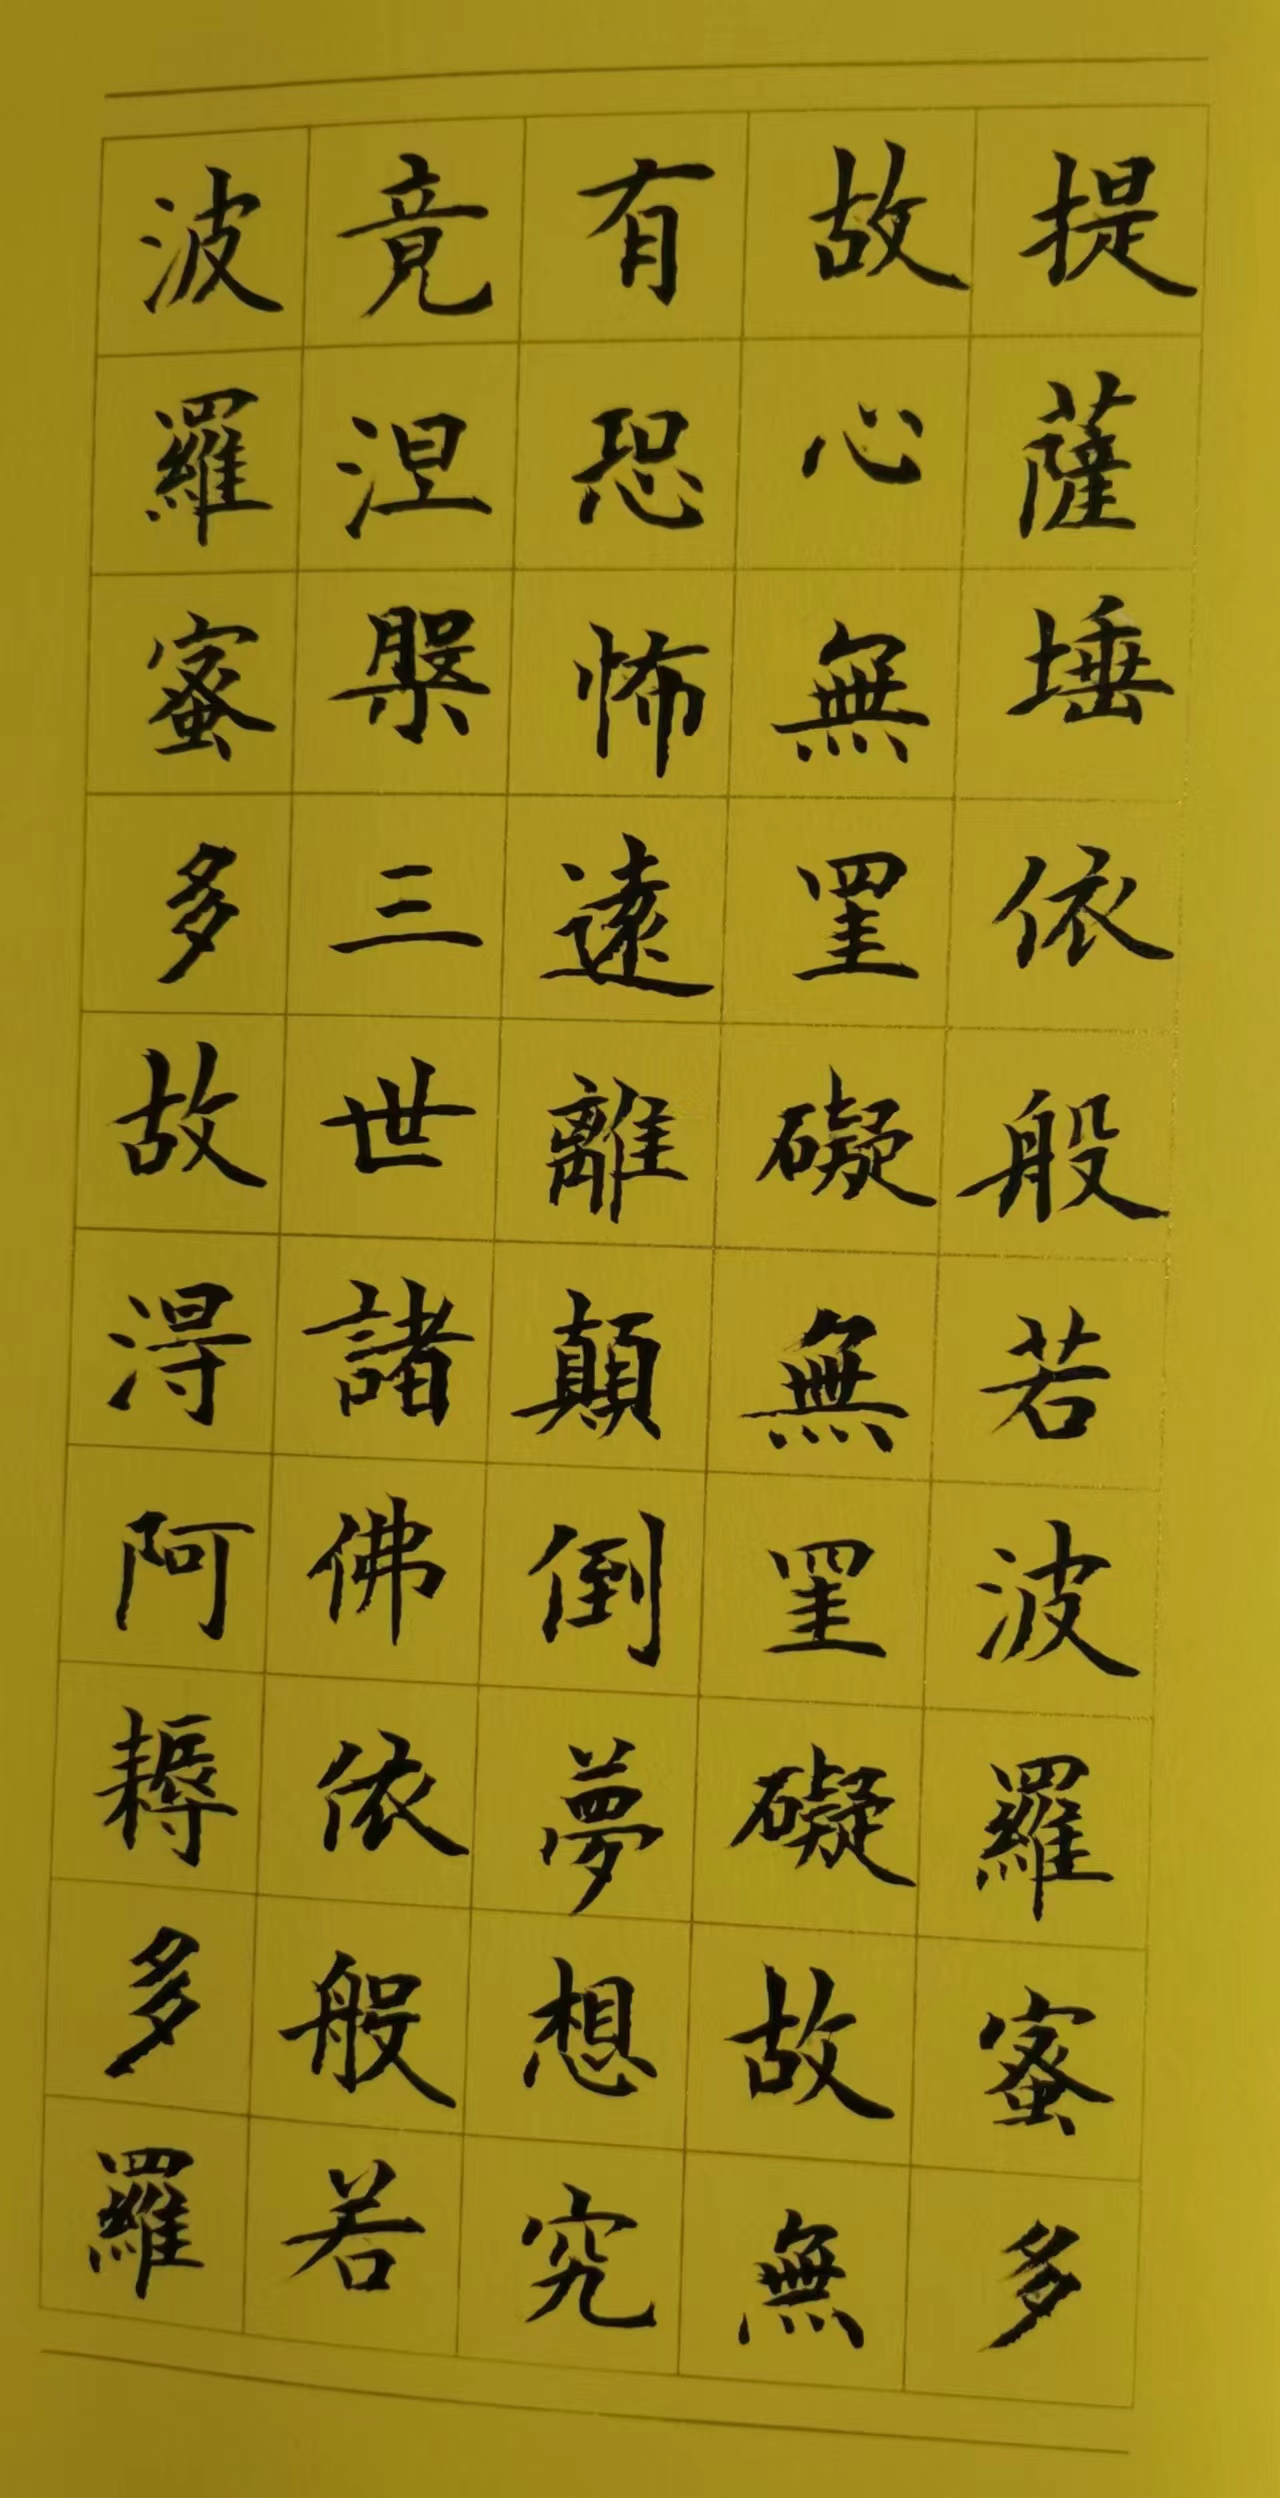 提薩埵依般若波羅蜜多
故心無罣礙無罣礙故無
有恐怖遠離顛倒夢想究
竟涅槃三世諸佛依般若
波羅蜜多故得阿耨多羅